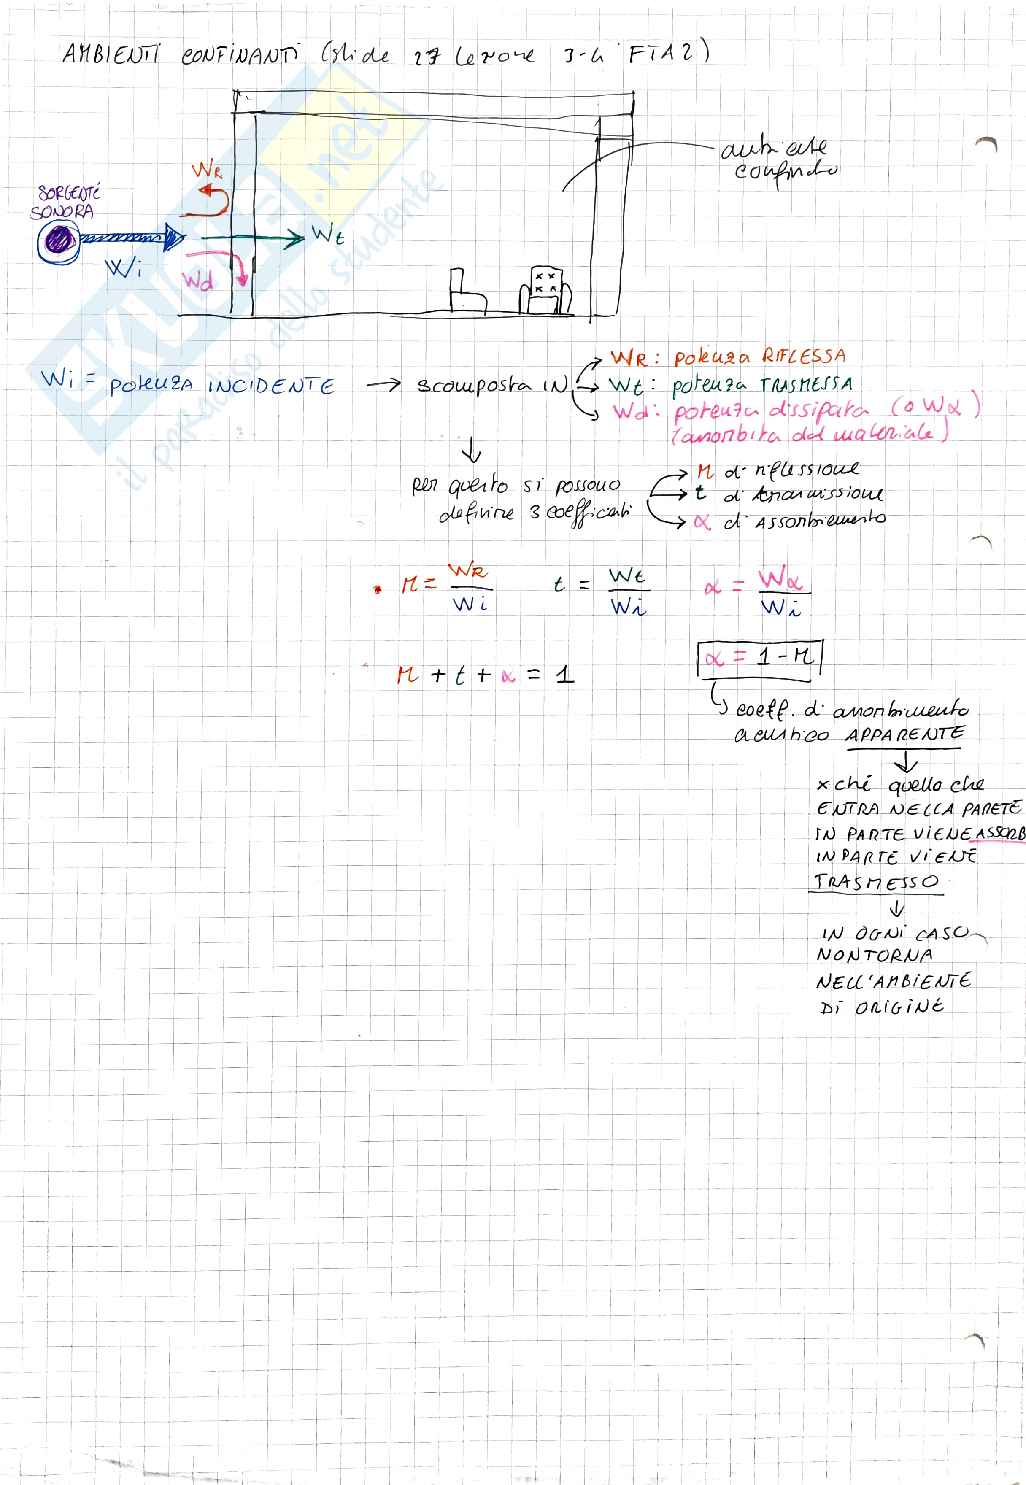 AMBIENTI CONFINANTI (slide 27 lezione 3-4 FTA2)
ambiente
confinato
WR
SORGENTE
SONORA
Wt
Wi
Wd
Wi = potenza INCIDENTE → scomposta IN
WR: potenza RIFLESSA
Wt: potenza TRASMESSA
Wd: potenza dissipata (o Wα)
(assorbita dal materiale)
per questo si possono
definire 3 coefficienti
r di riflessione
t di trasmissione
α di ASSORBIMENTO
r = WR / Wi t = Wt / Wi α = Wα / Wi
r + t + α = 1
α = 1 - r
coeff. di assorbimento
acustico APPARENTE
xché quello che
ENTRA NELLA PARETE
IN PARTE VIENE ASSORB
IN PARTE VIENE
TRASMESSO
IN OGNI CASO
NON TORNA
NELL'AMBIENTE
DI ORIGINE
SKUOLA.net
il paradiso dello studente